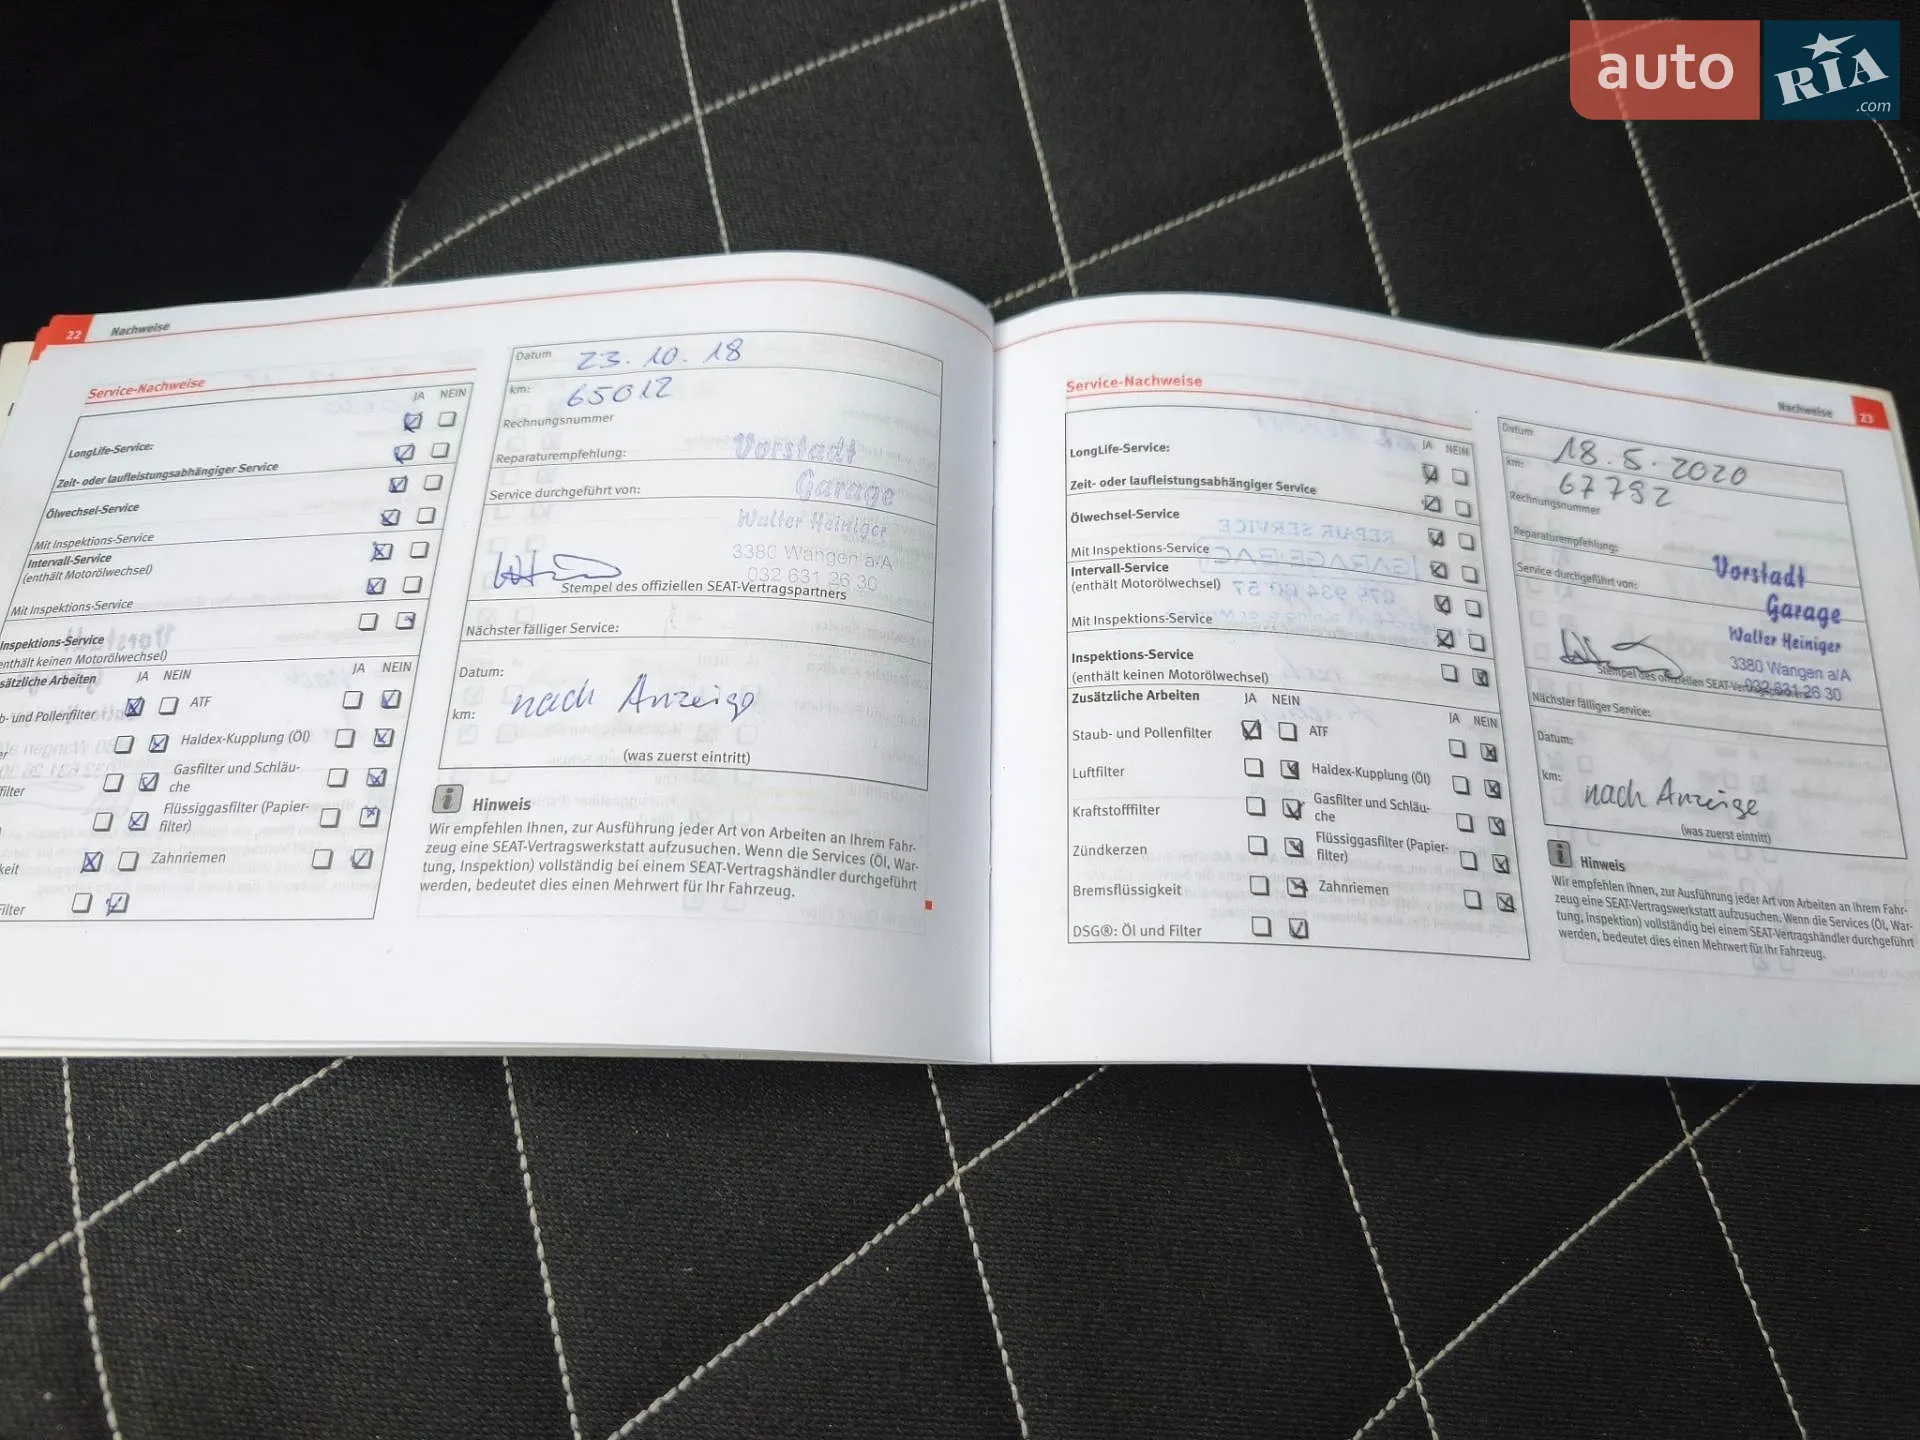 auto RIA .com
22 Nachweise
Service-Nachweise
JA NEIN
LongLife-Service:
Zeit- oder laufleistungsabhängiger Service
Ölwechsel-Service
Mit Inspektions-Service
Intervall-Service
(enthält Motorölwechsel)
Mit Inspektions-Service
Inspektions-Service
enthält keinen Motorölwechsel)
sätzliche Arbeiten JA NEIN JA NEIN
b- und Pollenfilter ATF
er Haldex-Kupplung (Öl)
filter Gasfilter und Schläu-
che
Flüssiggasfilter (Papier-
filter)
keit Zahnriemen
Filter
Datum 23.10.18
km: 65012
Rechnungsnummer
Reparaturempfehlung:
Vorstadt
Garage
Service durchgeführt von:
Walter Heiniger
3380 Wangen a/A
032 631 26 30
Stempel des offiziellen SEAT-Vertragspartners
Nächster fälliger Service:
Datum:
nach Anzeige
km:
(was zuerst eintritt)
i Hinweis
Wir empfehlen Ihnen, zur Ausführung jeder Art von Arbeiten an Ihrem Fahr-
zeug eine SEAT-Vertragswerkstatt aufzusuchen. Wenn die Services (Öl, War-
tung, Inspektion) vollständig bei einem SEAT-Vertragshändler durchgeführt
werden, bedeutet dies einen Mehrwert für Ihr Fahrzeug.
Nachweise 23
Service-Nachweise
JA NEIN
LongLife-Service:
Zeit- oder laufleistungsabhängiger Service
Ölwechsel-Service
Mit Inspektions-Service
Intervall-Service
(enthält Motorölwechsel)
Mit Inspektions-Service
Inspektions-Service
(enthält keinen Motorölwechsel)
Zusätzliche Arbeiten JA NEIN JA NEIN
Staub- und Pollenfilter ATF
Luftfilter Haldex-Kupplung (Öl)
Kraftstofffilter Gasfilter und Schläu-
che
Zündkerzen Flüssiggasfilter (Papier-
filter)
Bremsflüssigkeit Zahnriemen
DSG®: Öl und Filter
Datum 18.5.2020
km: 67792
Rechnungsnummer
Reparaturempfehlung:
Vorstadt
Service durchgeführt von:
Garage
Walter Heiniger
3380 Wangen a/A
032 631 26 30
Stempel des offiziellen SEAT-Vertragspartners
Nächster fälliger Service:
Datum:
km:
nach Anzeige
(was zuerst eintritt)
i Hinweis
Wir empfehlen Ihnen, zur Ausführung jeder Art von Arbeiten an Ihrem Fahr-
zeug eine SEAT-Vertragswerkstatt aufzusuchen. Wenn die Services (Öl, War-
tung, Inspektion) vollständig bei einem SEAT-Vertragshändler durchgeführt
werden, bedeutet dies einen Mehrwert für Ihr Fahrzeug.